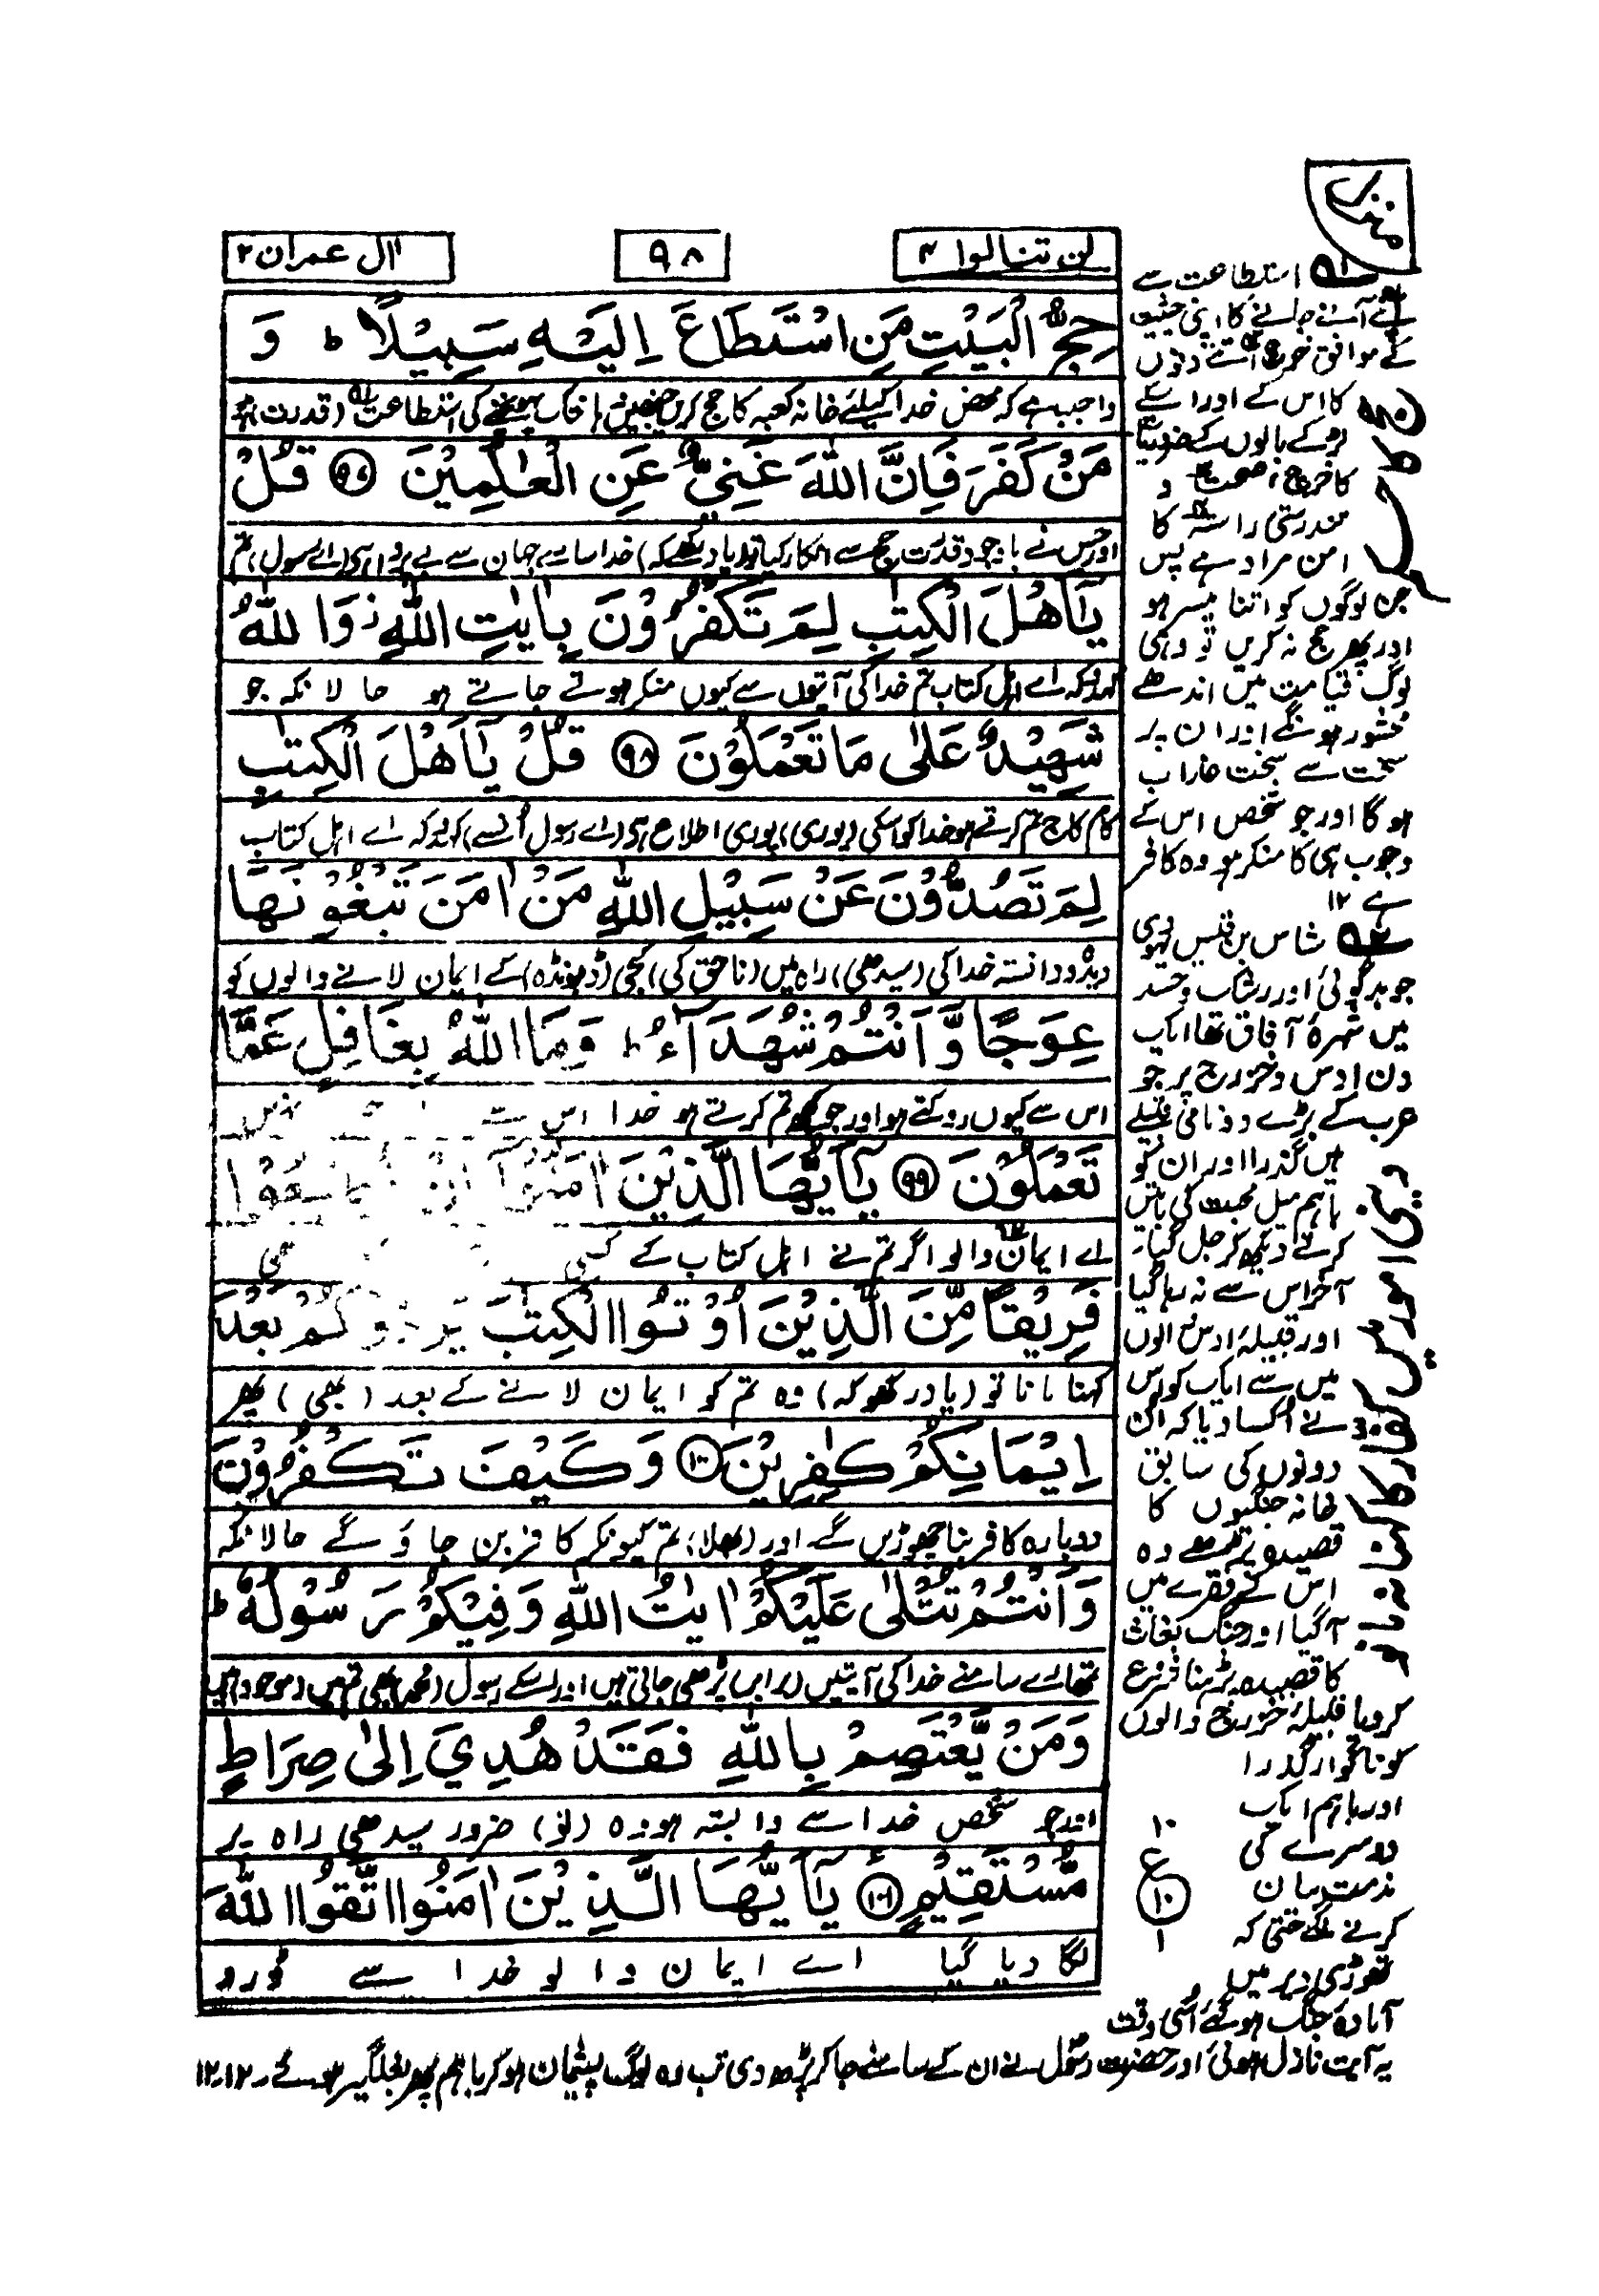 منزل
لن تنالوا ۴
۹۸
اٰل عمران ۳
حِجُّ الْبَيْتِ مَنِ اسْتَطَاعَ اِلَيْهِ سَبِيْلًا ؕ وَ
واجب ہے کہ محض خدا کیلئے خانہ کعبہ کا حج کریں جنھیں وہاں تک پہونچنے کی استطاعت (قدرت) ہو
مَنْ كَفَرَ فَاِنَّ اللّٰهَ غَنِيٌّ عَنِ الْعٰلَمِيْنَ ﴿۹۷﴾ قُلْ
اور جس نے باوجود قدرت حج سے انکار کیا تو (یاد رکھئے کہ) خدا سارے جہان سے بے پروا ہی (اے رسول) تم
يٰۤاَهْلَ الْكِتٰبِ لِمَ تَكْفُرُوْنَ بِاٰيٰتِ اللّٰهِ ۖ وَاللّٰهُ
کہدو کہ اے اہل کتاب تم خدا کی آیتوں سے کیوں منکر ہوئے جاتے ہو حالانکہ جو
شَهِيْدٌ عَلٰى مَا تَعْمَلُوْنَ ﴿۹۸﴾ قُلْ يٰۤاَهْلَ الْكِتٰبِ
کام کاج تم کرتے ہو خدا کو اسکی (پوری) پوری اطلاع ہی (اے رسول اُنسے) کہدو کہ اے اہل کتاب
لِمَ تَصُدُّوْنَ عَنْ سَبِيْلِ اللّٰهِ مَنْ اٰمَنَ تَبْغُوْنَهَا
دیدہ و دانستہ خدا کی (سیدھی) راہ میں (ناحق کی) کجی (ڈھونڈہ) کے ایمان لانے والوں کو
عِوَجًا وَّاَنْتُمْ شُهَدَآءُ ؕ وَمَا اللّٰهُ بِغَافِلٍ عَمَّا
اس سے کیوں روکتے ہو اور جو کچھ تم کرتے ہو خدا اس سے نہیں
تَعْمَلُوْنَ ﴿۹۹﴾ يٰۤاَيُّهَا الَّذِيْنَ اٰمَنُوْۤا اِنْ تُطِيْعُوْا
اے ایمان والو اگر تم نے اہل کتاب کے کسی
فَرِيْقًا مِّنَ الَّذِيْنَ اُوْتُوا الْكِتٰبَ يَرُدُّوْكُمْ بَعْدَ
کہنا مانا تو (یاد رکھو کہ) وہ تم کو ایمان لانے کے بعد (بھی) پھر
اِيْمَانِكُمْ كٰفِرِيْنَ ﴿۱۰۰﴾ وَكَيْفَ تَكْفُرُوْنَ
دوبارہ کافر بنا چھوڑیں گے اور (بھلا) تم کیونکر کافر بن جاؤ گے حالانکہ
وَاَنْتُمْ تُتْلٰى عَلَيْكُمْ اٰيٰتُ اللّٰهِ وَفِيْكُمْ رَسُوْلُهٗ ؕ
تمھارے سامنے خدا کی آیتیں (برابر) پڑھی جاتی ہیں اور اسکے رسول (محمد) بھی تم میں (موجود) ہیں
وَمَنْ يَّعْتَصِمْ بِاللّٰهِ فَقَدْ هُدِيَ اِلٰى صِرَاطٍ
اور جو شخص خدا سے وابستہ ہو وہ (تو) ضرور سیدھی راہ پر
مُّسْتَقِيْمٍ ﴿۱۰۱﴾ يٰۤاَيُّهَا الَّذِيْنَ اٰمَنُوا اتَّقُوا اللّٰهَ
لگا دیا گیا اے ایمان والو خدا سے ڈرو
۱۰
ع
۱۰
۱
ف۱ استطاعت سے
آنے جانے کا اپنی حیثیت
کے موافق خرچ آتے دنوں
کا اس کے اور اسکے
لڑکے بالوں کے ضروریات
کا خرچ، صحت و
تندرستی راستہ کا
امن مراد ہے پس
جن لوگوں کو اتنا میسر ہو
اور پھر حج نہ کریں تو وہی
لوگ قیامت میں اندھے
محشور ہونگے اور ان پر
سخت سے سخت عذاب
ہوگا اور جو شخص اس کے
وجوب ہی کا منکر ہو وہ کافر
ہے ۱۲
ف۲ شاس بن قیس یہودی
جو بدگوئی اور رشک و حسد
میں شہرۂ آفاق تھا ایک
دن اوس و خزرج پر جو
عرب کے بڑے دو نامی قبیلے
ہیں گذرا اور ان کو
باہم میل محبت کی باتیں
کرتے دیکھ کر جل گیا۔
آخر اس سے نہ رہا گیا
اور قبیلۂ اوس والوں
میں سے ایک کو اس
نے اُکسا دیا کہ ان
دونوں کی سابق
خانہ جنگیوں کا
قصیدہ پڑھے وہ
اس کے فقرے میں
آگیا اور جنگ بغاث
کا قصیدہ پڑھنا شروع
کر دیا قبیلۂ خزرج والوں
کو ناگوار گذرا
اور باہم ایک
دوسرے کی
مذمت بیان
کرنے لگے حتی کہ
تھوڑی دیر میں
آمادۂ جنگ ہو گئے اُسی وقت
یہ آیت نازل ہوئی اور حضرت رسول نے ان کے سامنے جا کر پڑھ دی تب وہ لوگ پشیمان ہو کر باہم پھر بغلگیر ہو گئے۔ ۱۲۔۱۲